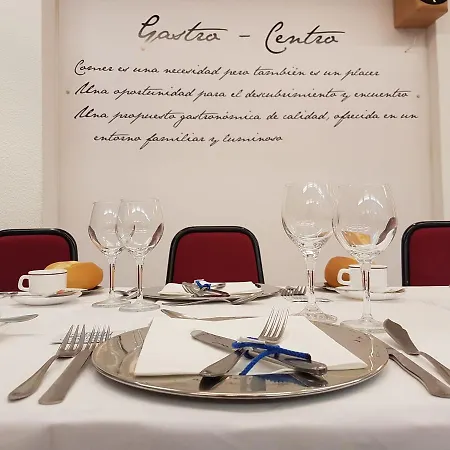 Gastro - Centro
Comer es una necesidad pero también es un placer
Una oportunidad para el descubrimiento y encuentro
Una propuesta gastronómica de calidad, ofrecida en un
entorno familiar y luminoso